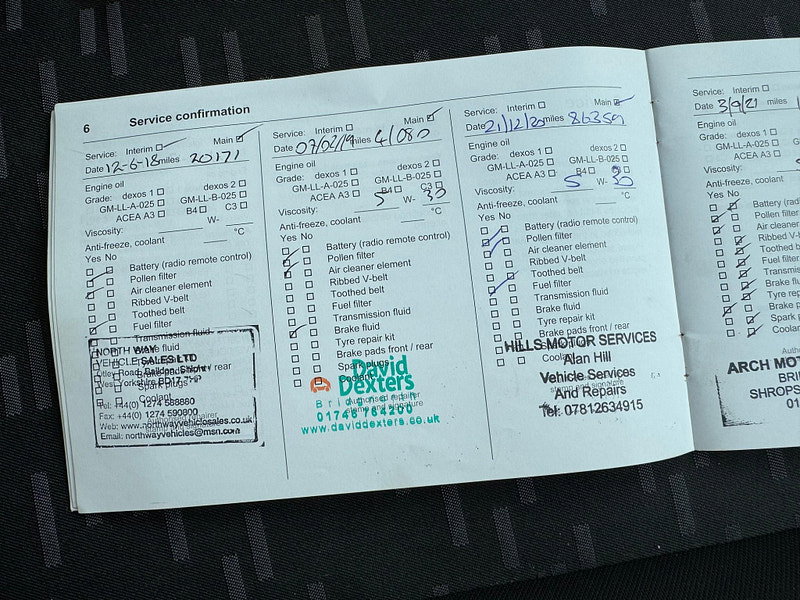 6
Service confirmation
Service: Interim Main
Date 12-6-18 miles 20171
Engine oil
Grade: dexos 1 dexos 2
GM-LL-A-025 GM-LL-B-025
ACEA A3 B4 C3
Viscosity: W-
Anti-freeze, coolant °C
Yes No
Battery (radio remote control)
Pollen filter
Air cleaner element
Ribbed V-belt
Toothed belt
Fuel filter
Transmission fluid
Brake fluid
Coolant
NORTH WAY
VEHICLE SALES LTD
Otley Road, Baildon, Shipley
West Yorkshire BD17
Tel: +44(0) 1274 588880
Fax: +44(0) 1274 590800
Web: www.northwayvehiclesales.co.uk
Email: northwayvehicles@msn.com
Service: Interim Main
Date 07/02/19 miles
Engine oil
Grade: dexos 1 dexos 2
GM-LL-A-025 GM-LL-B-025
ACEA A3 B4 C3
Viscosity: 5 W- 30
Anti-freeze, coolant °C
Yes No
Battery (radio remote control)
Pollen filter
Air cleaner element
Ribbed V-belt
Toothed belt
Fuel filter
Transmission fluid
Brake fluid
Tyre repair kit
Brake pads front / rear
Spark plugs
Coolant
David
Dexters
Bridgnorth
Authorised repairer
stamp and signature
01746 764200
www.daviddexters.co.uk
Service: Interim Main
Date 21/12/20 miles
Engine oil
Grade: dexos 1 dexos 2
GM-LL-A-025 GM-LL-B-025
ACEA A3 B4
Viscosity: 5 W- 30
Anti-freeze, coolant °C
Yes No
Battery (radio remote control)
Pollen filter
Air cleaner element
Ribbed V-belt
Toothed belt
Fuel filter
Transmission fluid
Brake fluid
Tyre repair kit
Brake pads front / rear
HILLS MOTOR SERVICES
Alan Hill
Vehicle Services
And Repairs
Tel: 07812634915
Service: Interim
Date 3/9/21 miles
Engine oil
Grade: dexos 1
GM-LL-A-025
ACEA A3
Viscosity:
Anti-freeze, coolant
Yes No
Battery
Pollen filter
Air cleaner
Ribbed V-b
Toothed b
Fuel filter
Transmis
Brake flu
Tyre rep
Brake p
Spark
Coola
ARCH MOT
BRI
SHROPS
01